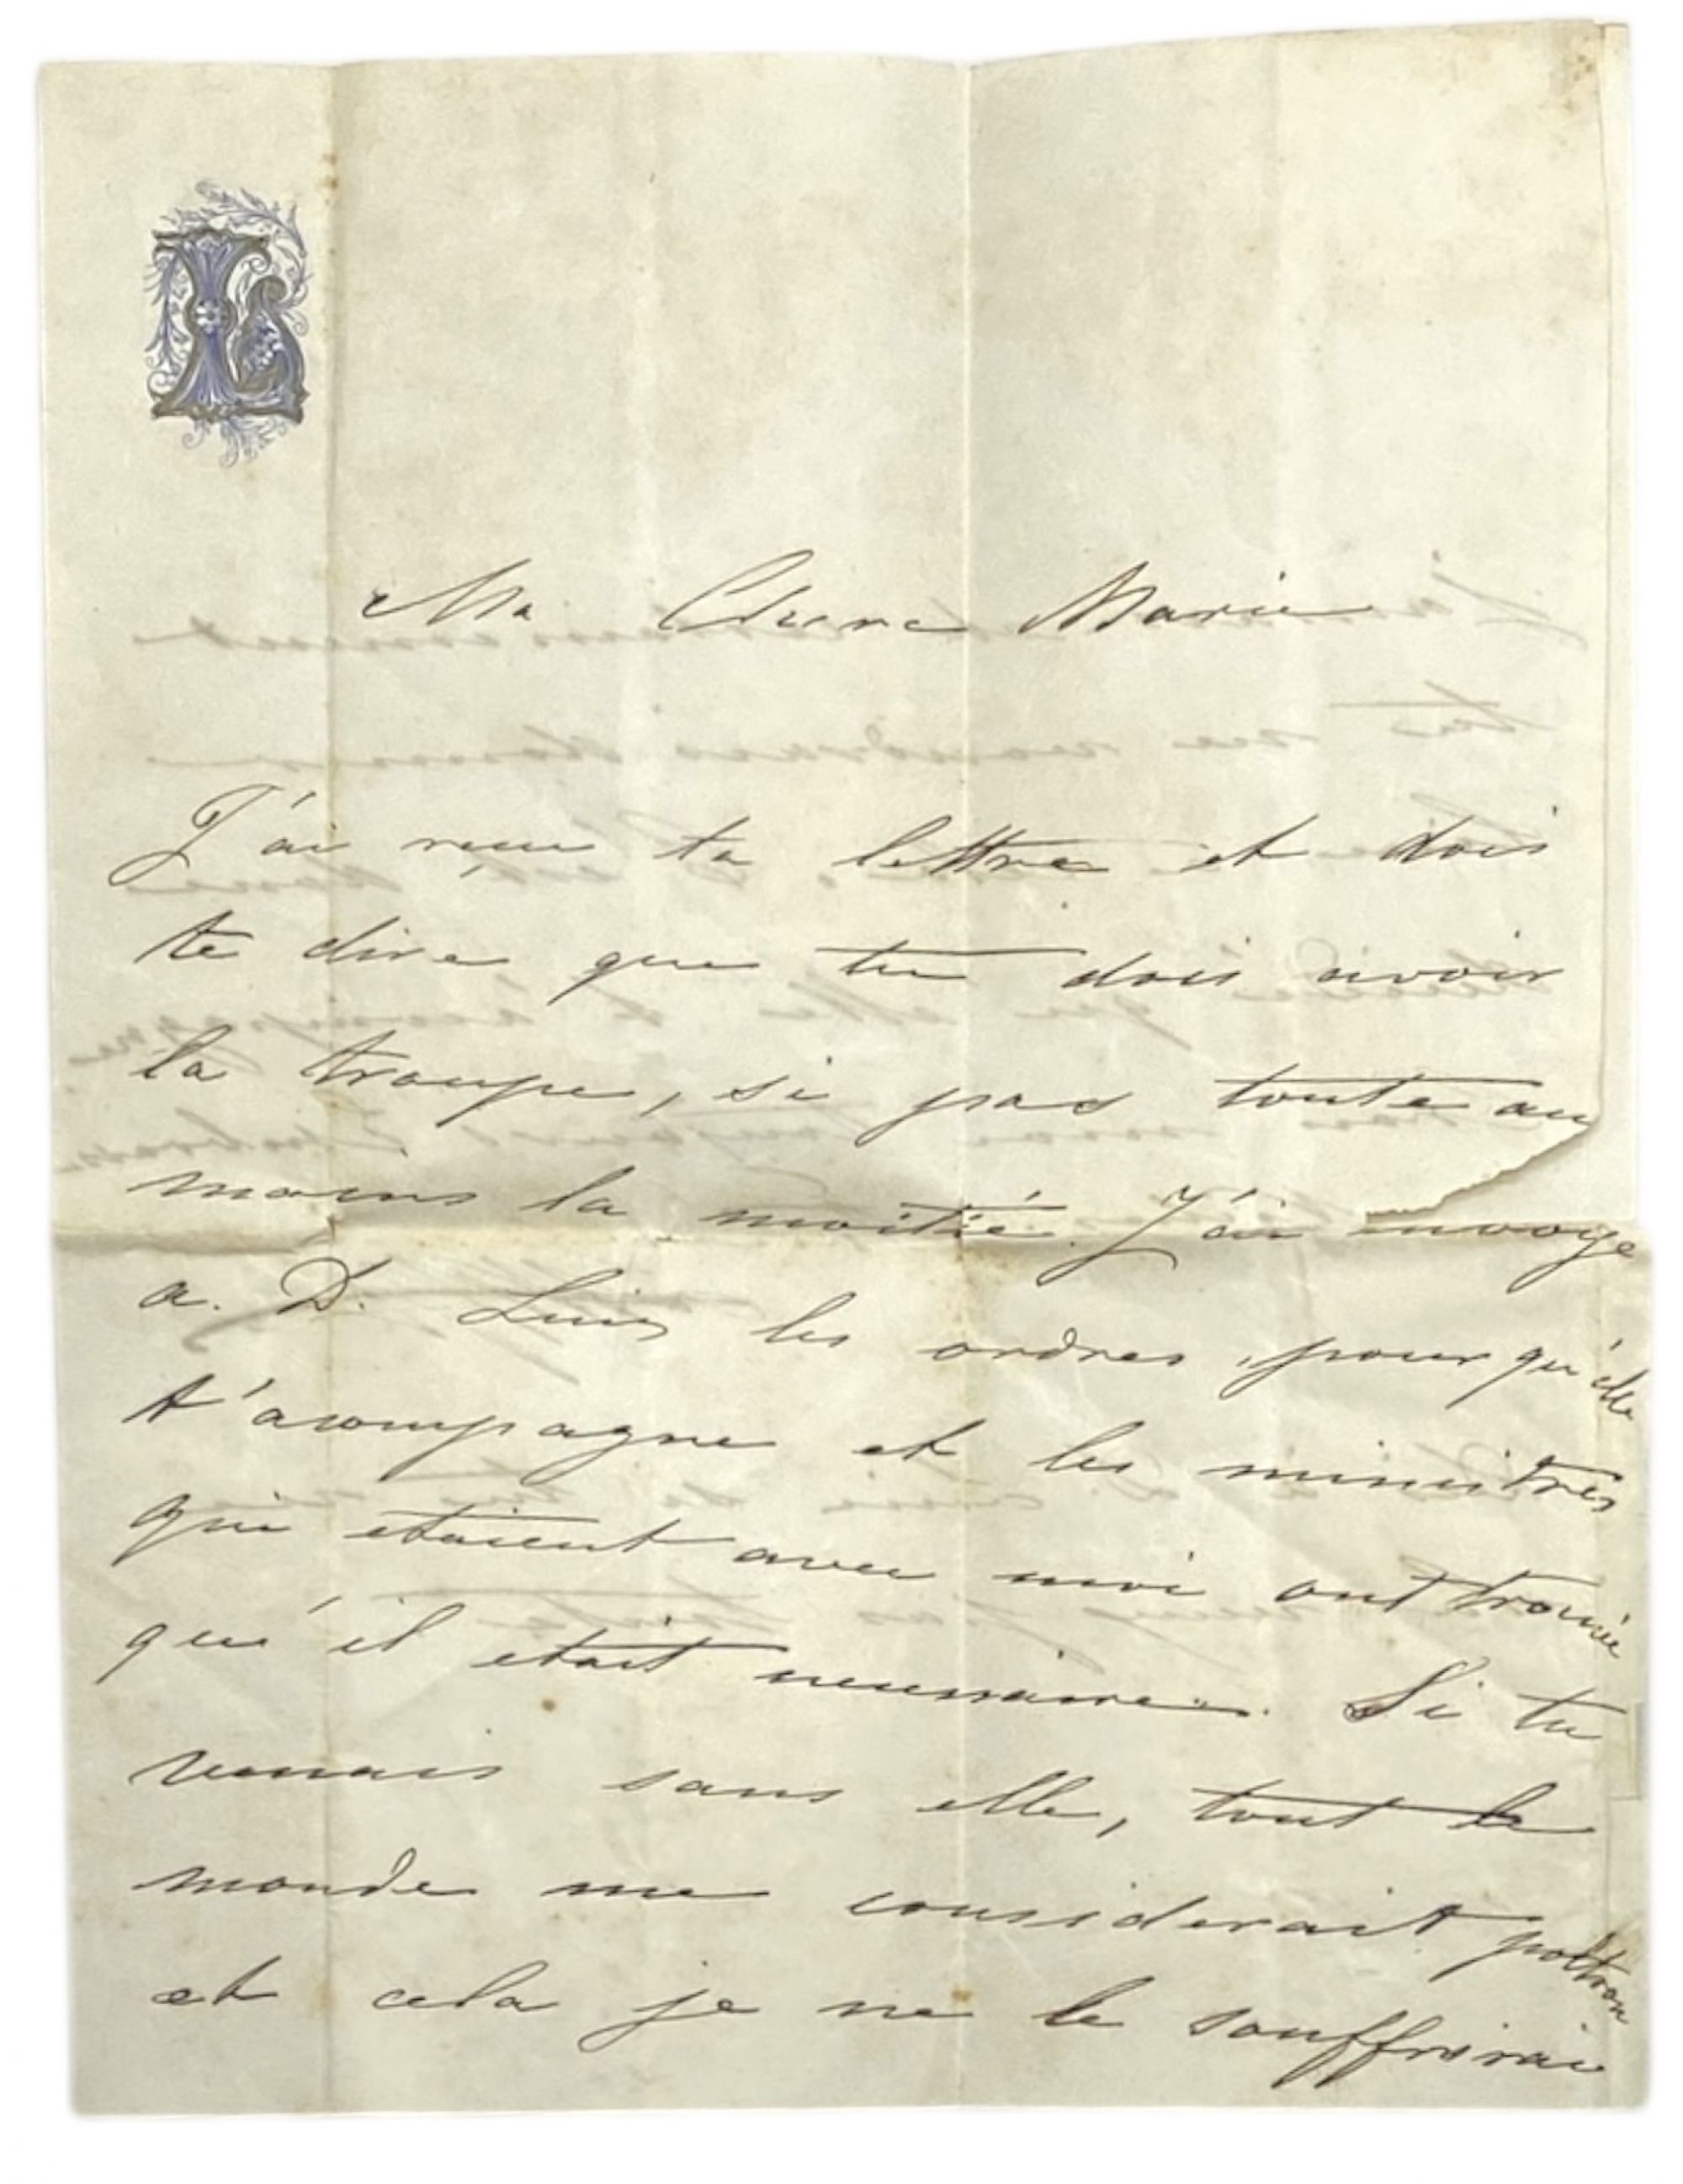 L
Ma Chere Marie
J'ai reçu ta lettre et dois
te dire que tu dois avoir
la troupe, si pas toute au
moins la moitié. J'ai envoye
a. D. Luis les ordres, pour qu'elle
t'acompagne et les ministres
qui etaient avec moi ont trouvé
qu'il etait necessaire. Si tu
venais sans elle, tout le
monde me considerait poltron
et cela je ne le souffrirai